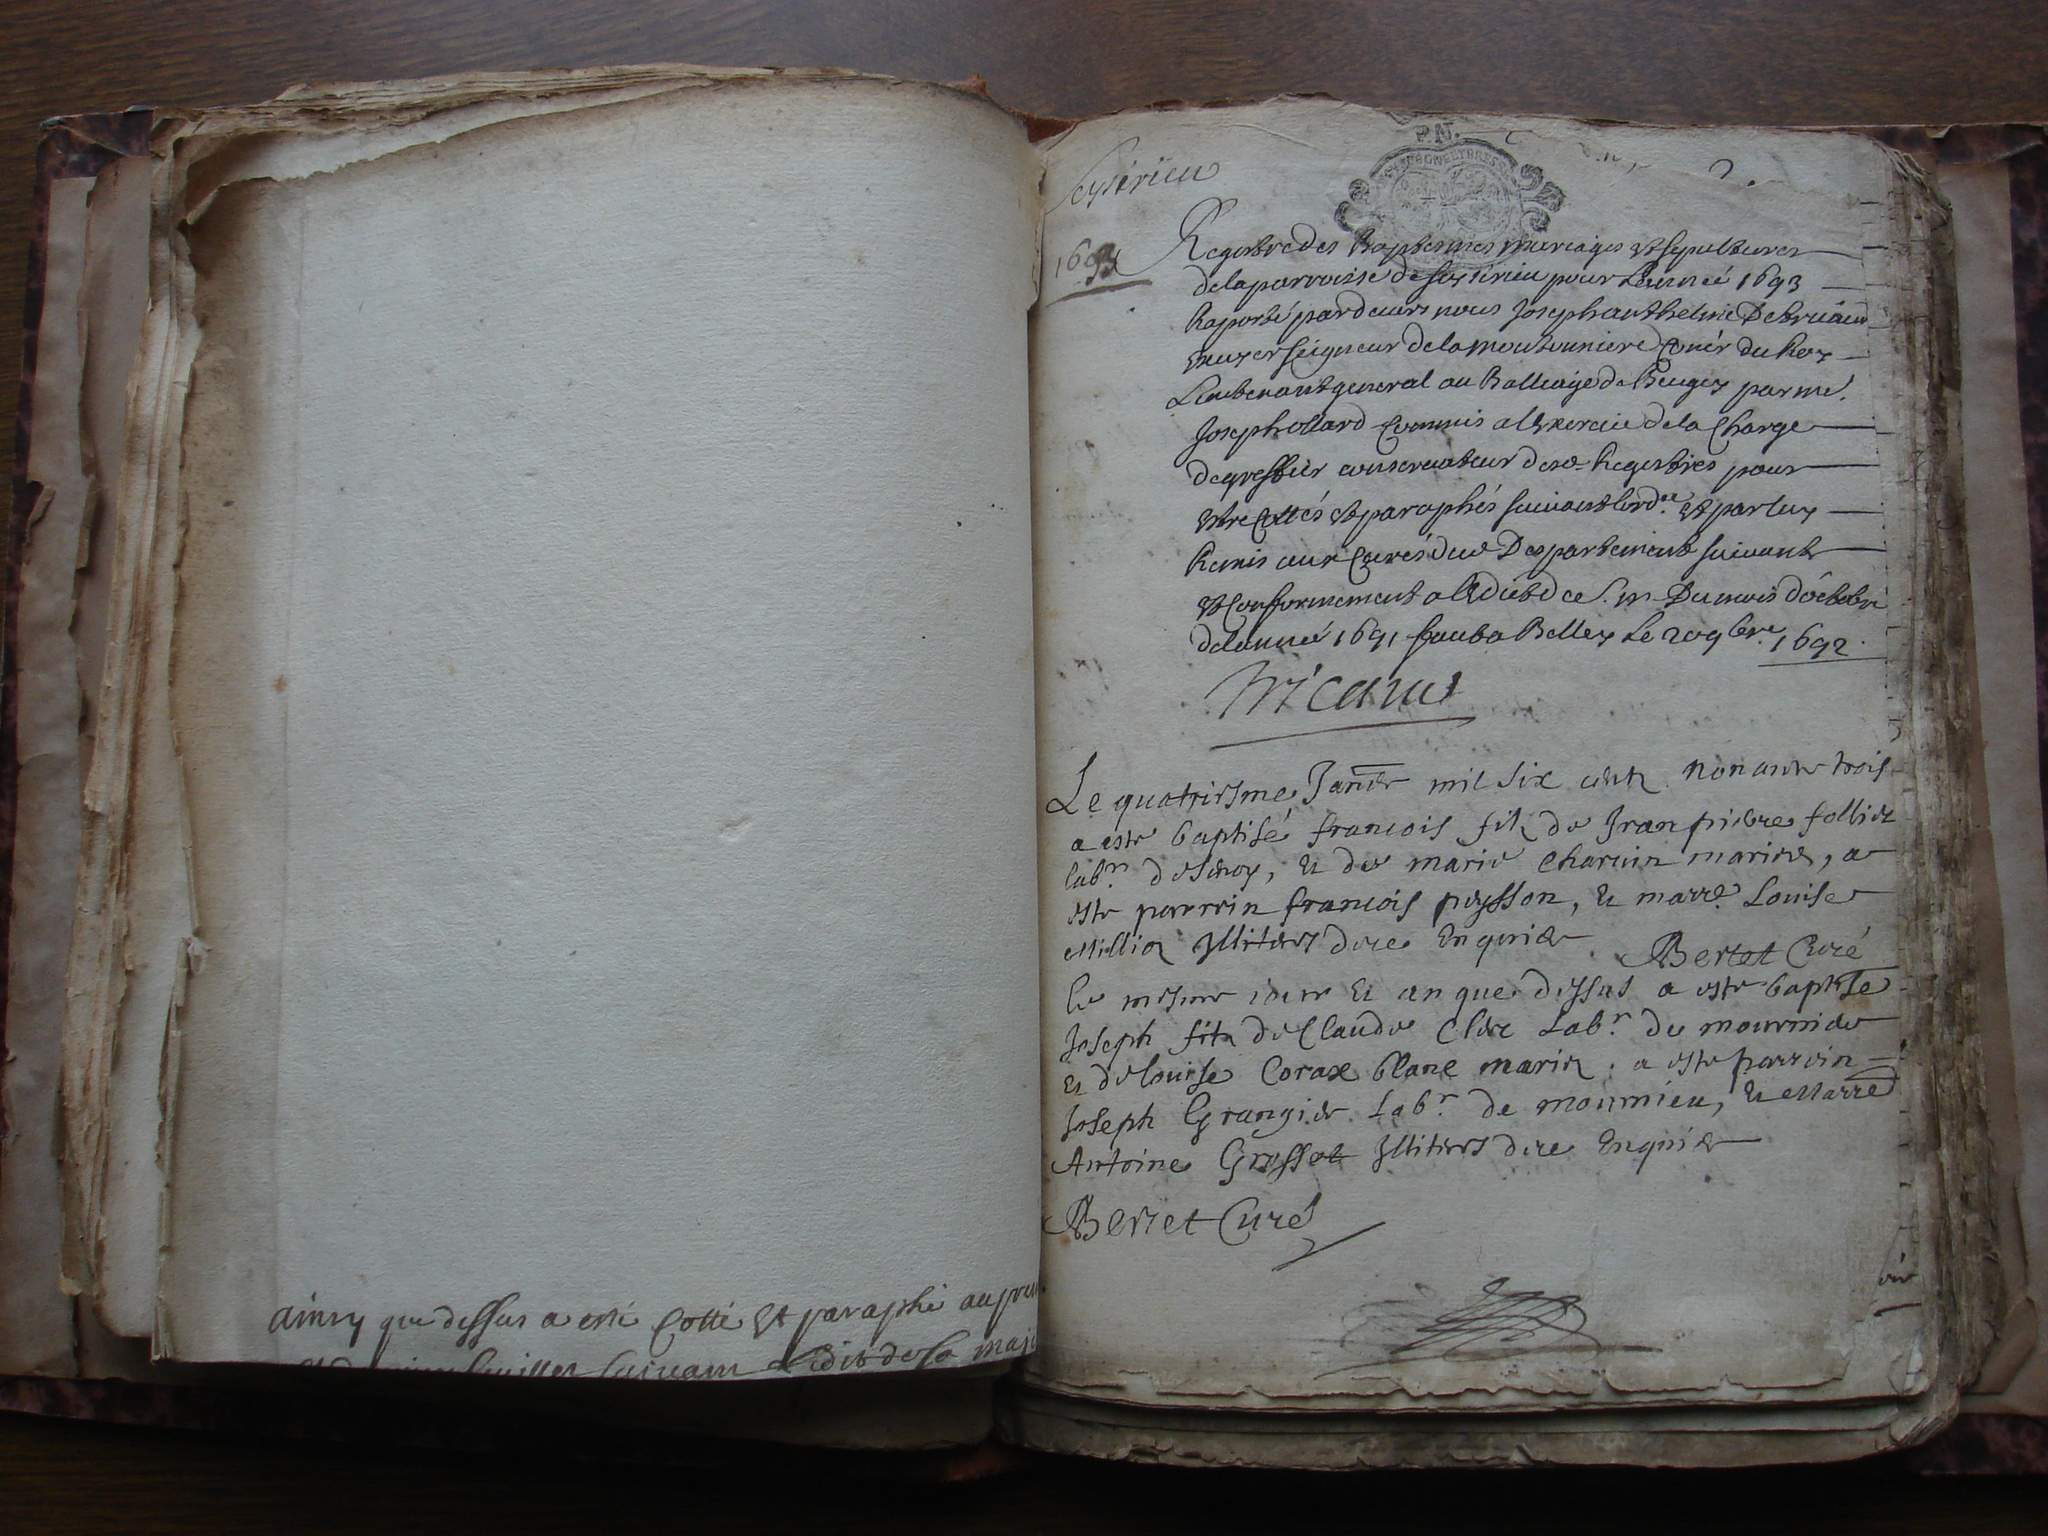 ainsy que dessus a esté Cotté et paraphé au
suivant Ledit de sa maj
Seysirieu
1693
Regestre des Baptesmes mariages et sepultures
de la parroisse de Seysirieu pour L'année 1693
Raporté pardevers nous Joseph anthelme
seigneur de la moutonniere Coner du Roy
Lieutenant general au Balliage de Beugey par me.
Joseph ollard Commis a l'exercice de la Charge
de greffier conservateur desd. Regestres pour
estre Cottés et paraphés suivant lord.ce et par luy
Remis aux Curés dud Despartement suivant
et Conformement a l'Edict de S. M. Du mois d'octobre
de lannée 1691 a Belley Le 20 9bre 1692.
Le quatriesme Janvier mil six cent nonante trois
a este baptisé francois filz de Jean pierre follict
lab.r et de marie charvin mariez, a
este parrein francois peysson, et marre. Louise
Millioz illiteres de ce enquis
Bertet Curé
Le mesme iour et an que dessus a este baptisé
Joseph filz de Claude Clerc Lab.r de
et de louise Corax blanc mariez. a este parrein
Joseph Grangier Lab.r de et Marre
Antoine Grossot illiteres de ce enquis
Bertet Curé